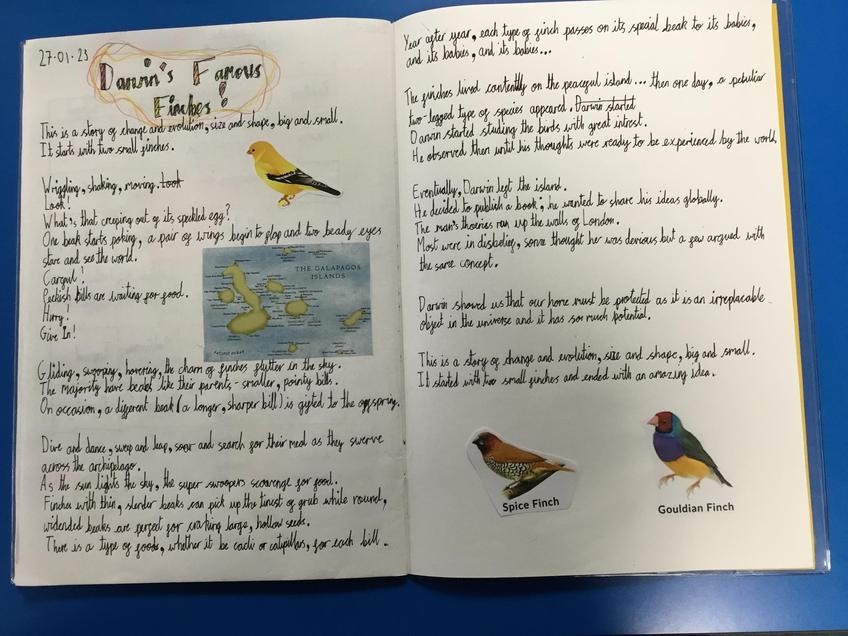 27.01.23
Darwin's Famous
Finches!
This is a story of change and evolution, size and shape, big and small.
It starts with two small finches.
Wriggling, shaking, moving. Look
Look!
What's that creeping out of its speckled egg?
One beak starts poking, a pair of wings begin to flap and two beady eyes
stare and see the world.
Careful!
Peckish bills are waiting for food.
Hurry!
Give In!
THE GALAPAGOS
ISLANDS
Gliding, swooping, hovering, the charm of finches flutter in the sky.
The majority have beaks like their parents - smaller, pointy bills.
On occasion, a different beak (a longer, sharper bill) is gifted to the offspring.
Dive and dance, swoop and leap, soar and search for their meal as they swerve
across the archipelago.
As the sun lights the sky, the super swoopers scavenge for food.
Finches with thin, slender beaks can pick up the tinest of grub while round,
widended beaks are perfect for craking large, hollow seeds.
There is a type of foods, whether it be cacti or catipillars, for each bill.
Year after year, each type of finch passes on its special beak to its babies,
and its babies, and its babies...
The finches lived contently on the peaceful island... then one day, a peculiar
two-legged type of species appeared. Darwin started
Darwin started studing the birds with great intrest.
He observed then until his thoughts were ready to be experienced by the world.
Eventually, Darwin left the island.
He decided to publish a book; he wanted to share his ideas globally.
The man's theories ran up the walls of London.
Most were in disbelief, some thought he was devious but a few argued with
the same concept.
Darwin showed us that our home must be protected as it is an irreplaceable
object in the universe and it has so much potential.
This is a story of change and evolution, size and shape, big and small.
It started with two small finches and ended with an amazing idea.
Spice Finch
Gouldian Finch